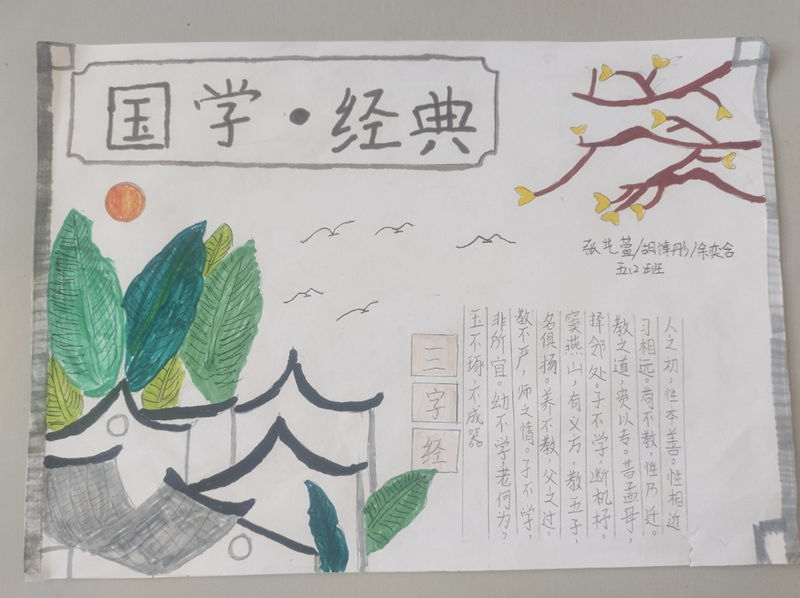 国学·经典
五(2)班
三字经
人之初,性本善。性相近
习相远。苟不教,性乃迁。
教之道,贵以专。昔孟母,
择邻处。子不学,断机杼。
窦燕山,有义方。教五子,
名俱扬。养不教,父之过。
教不严,师之惰。子不学,
非所宜。幼不学,老何为?
玉不琢,不成器